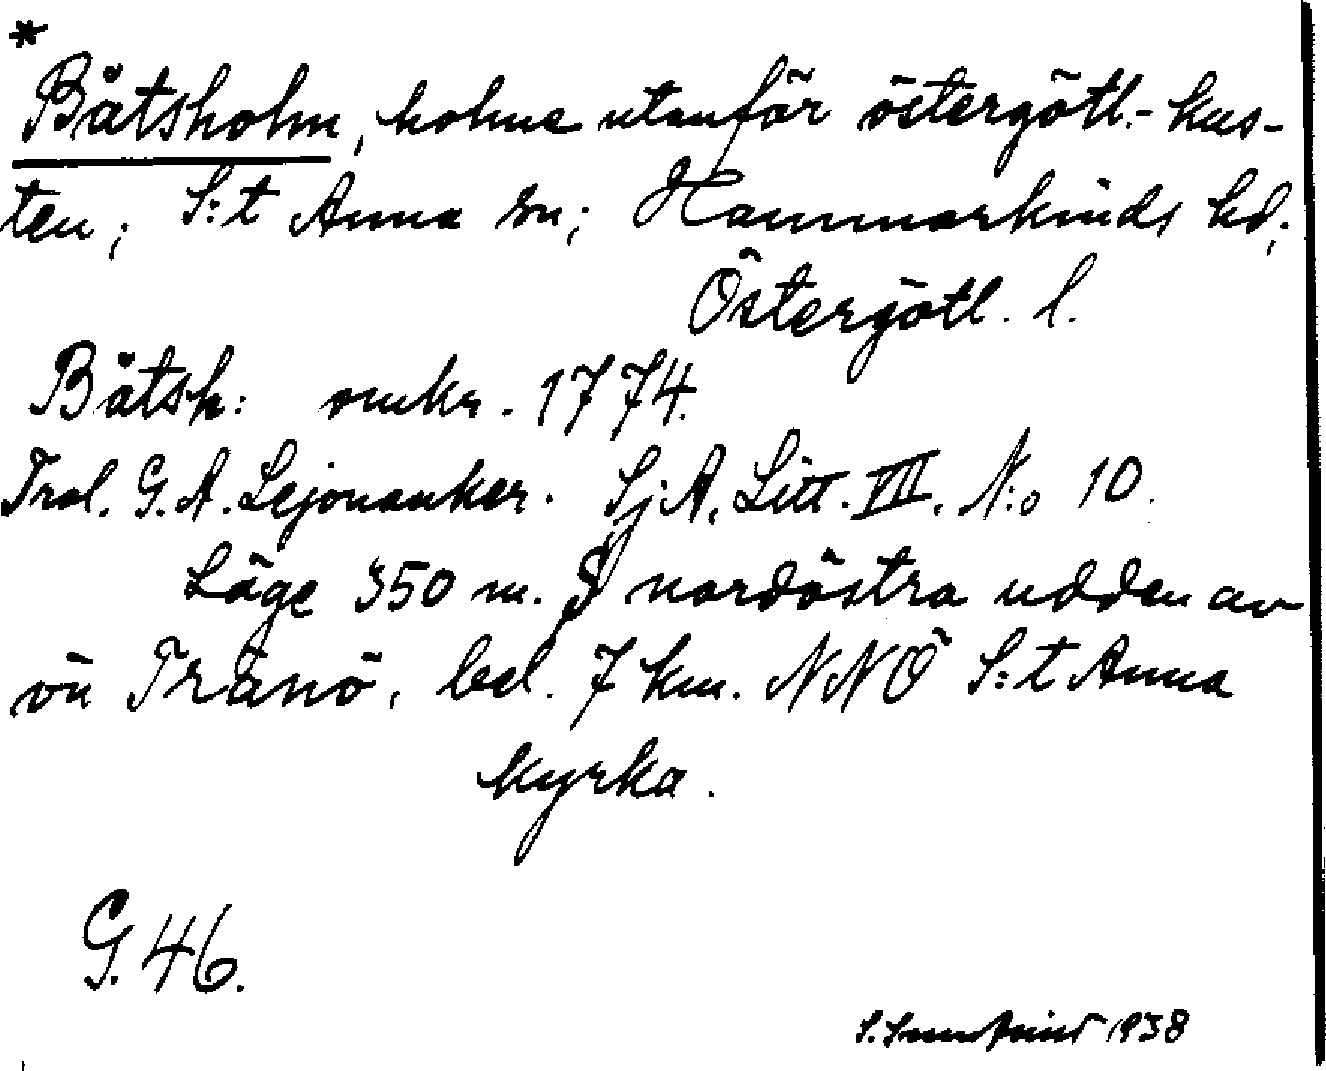 *
Båtsholm, holme utanför östergötl.-kus-
ten; S:t Anna sn; Hammarkinds hd;
Östergötl. l.
Båtsh: omkr. 1774.
Trol. G. A. Lejonanker. Sj.A. Litt. VII. N:o 10.
Läge 350 m. S nordöstra udden av
ön Tränö, bel. 7 km. NNÖ S:t Anna
kyrka.
G. 46.
S. 1938